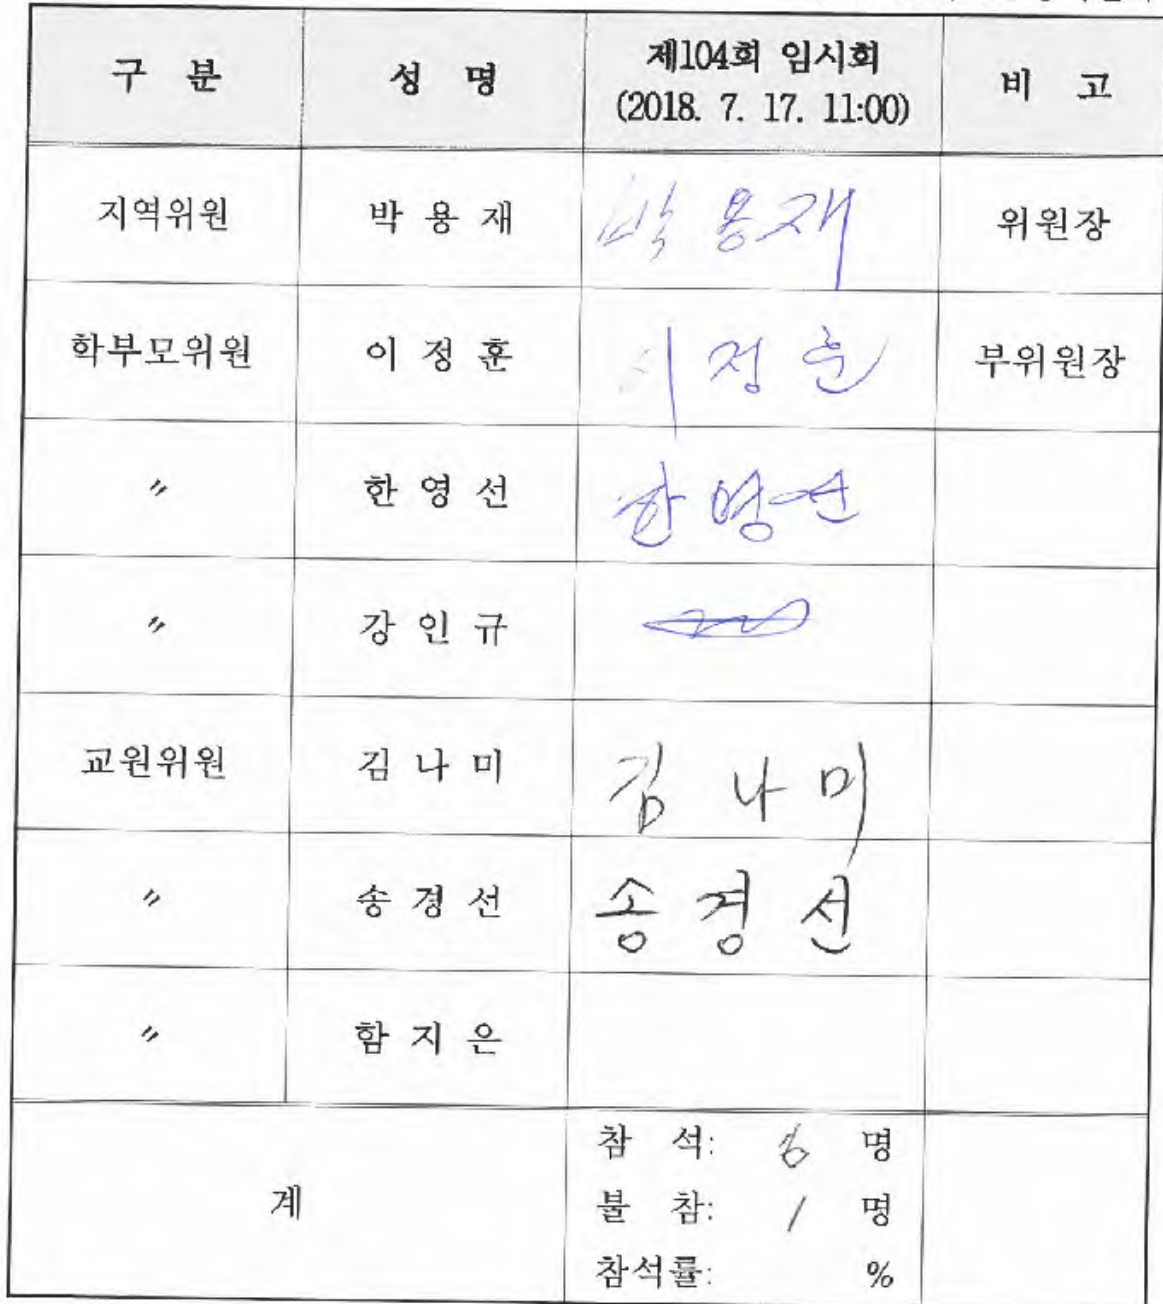 구 분 성 명 제104회 임시회 비 고
(2018. 7. 17. 11:00)
지역위원 박 용 재 박 용 재 위원장
학부모위원 이 정 훈 이 정 훈 부위원장
〃 한 영 선 한 영 선
〃 강 인 규
교원위원 김 나 미 김 나 미
〃 송 경 선 송 경 선
〃 함 지 은
계 참 석: 6 명
불 참: 1 명
참석률: %